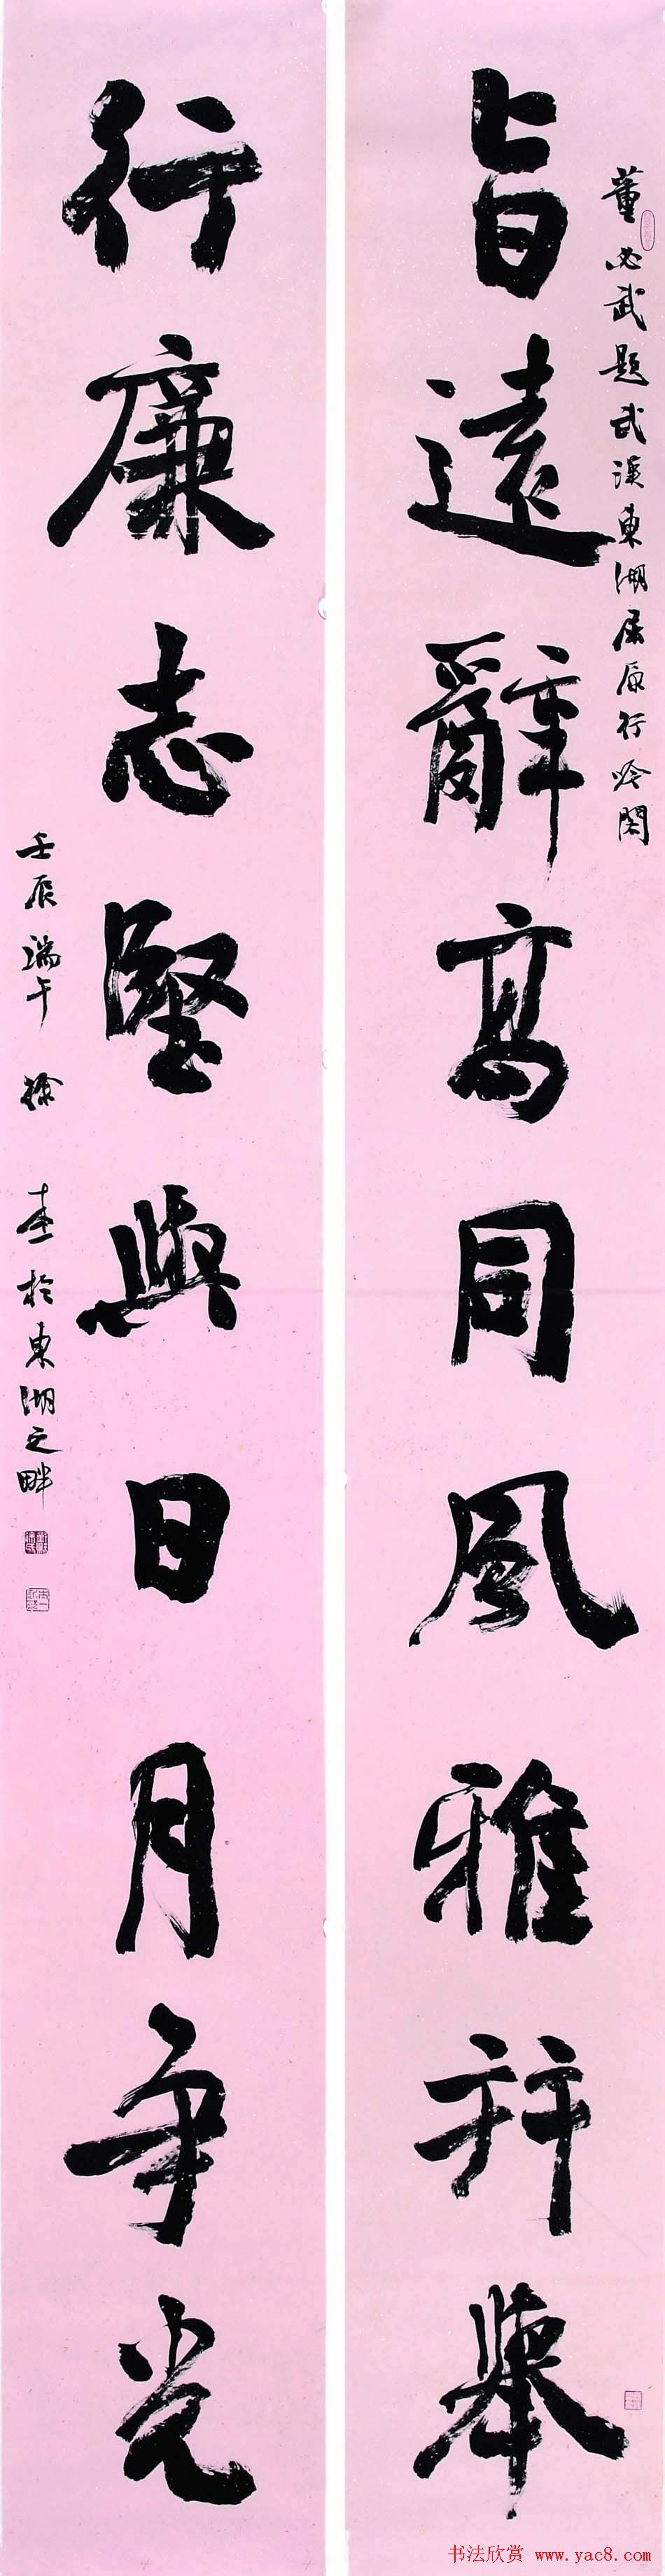 董必武题武汉東湖屈原行吟閣
旨遠辭高同風雅并舉
行廉志堅與日月争光
壬辰端午徐
於東湖之畔
书法欣赏 www.yac8.com